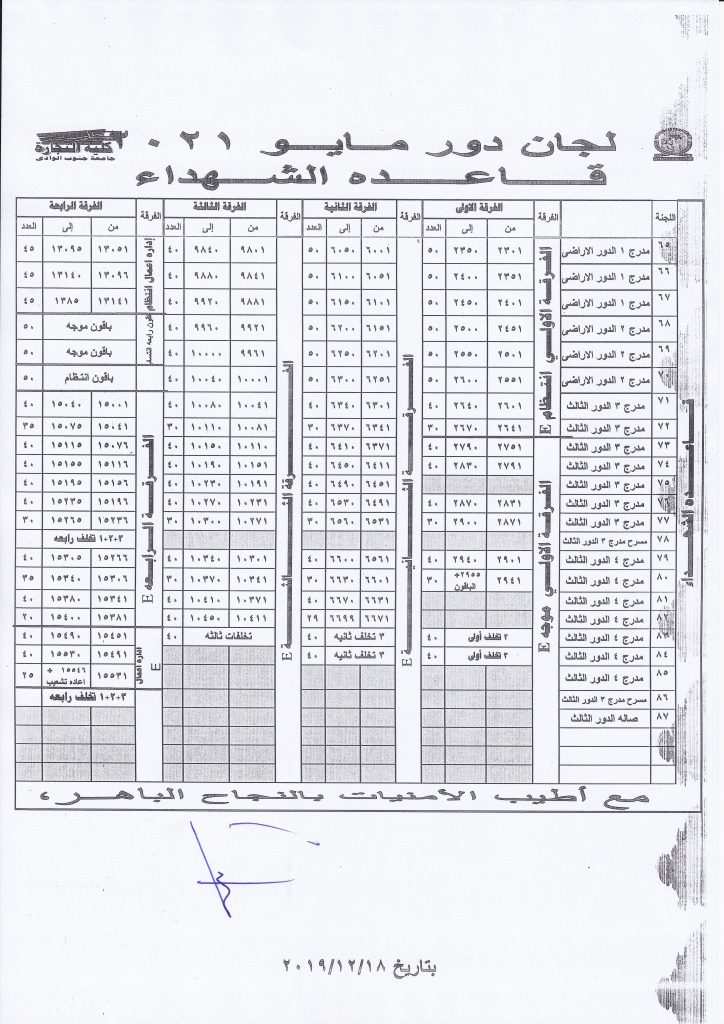 لجان دور مايو ٢٠٢١
كلية التجارة
جامعة جنوب الوادى
قاعده الشهداء
اللجنة الفرقة الفرقة الاولى الفرقة الفرقة الثانية الفرقة الفرقة الثالثة الفرقة الفرقة الرابعة
من إلى العدد من إلى العدد من إلى العدد من إلى العدد
٦٥ مدرج ١ الدور الاراضى ٢٣٠١ ٢٣٥٠ ٥٠ ٦٠٠١ ٦٠٥٠ ٥٠ ٩٨٠١ ٩٨٤٠ ٤٠ ١٣٠٥١ ١٣٠٩٥ ٤٥
٦٦ مدرج ١ الدور الاراضى ٢٣٥١ ٢٤٠٠ ٥٠ ٦٠٥١ ٦١٠٠ ٥٠ ٩٨٤١ ٩٨٨٠ ٤٠ ١٣٠٩٦ ١٣١٤٠ ٤٥
٦٧ مدرج ١ الدور الاراضى ٢٤٠١ ٢٤٥٠ ٥٠ ٦١٠١ ٦١٥٠ ٥٠ ٩٨٨١ ٩٩٢٠ ٤٠ ١٣١٤١ ١٣٨٥ ٤٥
٦٨ مدرج ٢ الدور الاراضى ٢٤٥١ ٢٥٠٠ ٥٠ ٦١٥١ ٦٢٠٠ ٥٠ ٩٩٢١ ٩٩٦٠ ٤٠ باقون موجه ٥٠
٦٩ مدرج ٢ الدور الاراضى ٢٥٠١ ٢٥٥٠ ٥٠ ٦٢٠١ ٦٢٥٠ ٥٠ ٩٩٦١ ١٠٠٠٠ ٤٠ باقون موجه ٥٠
٧٠ مدرج ٢ الدور الاراضى ٢٥٥١ ٢٦٠٠ ٥٠ ٦٢٥١ ٦٣٠٠ ٥٠ ١٠٠٠١ ١٠٠٤٠ ٤٠ باقون انتظام ٥٠
٧١ مدرج ٣ الدور الثالث ٢٦٠١ ٢٦٤٠ ٤٠ ٦٣٠١ ٦٣٤٠ ٤٠ ١٠٠٤١ ١٠٠٨٠ ٤٠ ١٥٠٠١ ١٥٠٤٠ ٤٠
٧٢ مدرج ٣ الدور الثالث ٢٦٤١ ٢٦٧٠ ٣٠ ٦٣٤١ ٦٣٧٥ ٣٠ ١٠٠٨١ ١٠١١٠ ٣٠ ١٥٠٤١ ١٥٠٧٥ ٣٥
٧٣ مدرج ٣ الدور الثالث ٢٧٥١ ٢٧٩٠ ٤٠ ٦٣٧١ ٦٤١٠ ٤٠ ١٠١١٠ ١٠١٥٠ ٤٠ ١٥٠٧٦ ١٥١١٥ ٤٠
٧٤ مدرج ٣ الدور الثالث ٢٧٩١ ٢٨٣٠ ٤٠ ٦٤١١ ٦٤٥٠ ٤٠ ١٠١٥١ ١٠١٩٠ ٤٠ ١٥١١٦ ١٥١٥٥ ٤٠
٧٥ مدرج ٣ الدور الثالث ٦٤٥١ ٦٤٩٠ ٤٠ ١٠١٩١ ١٠٢٣٠ ٤٠ ١٥١٥٦ ١٥١٩٥ ٤٠
٧٦ مدرج ٣ الدور الثالث ٢٨٣١ ٢٨٧٠ ٤٠ ٦٤٩١ ٦٥٣٠ ٤٠ ١٠٢٣١ ١٠٢٧٠ ٤٠ ١٥١٩٦ ١٥٢٣٥ ٤٠
٧٧ مدرج ٣ الدور الثالث ٢٨٧١ ٢٩٠٠ ٣٠ ٦٥٣١ ٦٥٦٠ ٣٠ ١٠٢٧١ ١٠٣٠٠ ٣٠ ١٥٢٣٦ ١٥٢٦٥ ٣٠
٧٨ مسرح مدرج ٣ الدور الثالث ١+٢+٣ تخلف رابعه
٧٩ مدرج ٤ الدور الثالث ٢٩٠١ ٢٩٤٠ ٤٠ ٦٥٦١ ٦٦٠٠ ٤٠ ١٠٣٠١ ١٠٣٤٠ ٤٠ ١٥٢٦٦ ١٥٣٠٥ ٤٠
٨٠ مدرج ٤ الدور الثالث ٢٩٤١ ٢٩٥٥+ الباقون ٣٠ ٦٦٠١ ٦٦٣٠ ٣٠ ١٠٣٤١ ١٠٣٧٠ ٣٠ ١٥٣٠٦ ١٥٣٤٠ ٣٥
٨١ مدرج ٤ الدور الثالث ٦٦٣١ ٦٦٧٠ ٤٠ ١٠٣٧١ ١٠٤١٠ ٤٠ ١٥٣٤١ ١٥٣٨٠ ٤٠
٨٢ مدرج ٤ الدور الثالث ٦٦٧١ ٦٦٩٩ ٢٩ ١٠٤١١ ١٠٤٥٠ ٤٠ ١٥٣٨١ ١٥٤٠٠ ٢٠
٨٣ مدرج ٤ الدور الثالث ٢ تخلف أولى ٤٠ ٣ تخلف ثانيه ٤٠ تخلفات ثالثه ٤٠ ١٥٤٥١ ١٥٤٩٠ ٤٠
٨٤ مدرج ٤ الدور الثالث ٢ تخلف أولى ٤٠ ٣ تخلف ثانيه ٤٠ ١٥٤٩١ ١٥٥٣٠ ٤٠
٨٥ مدرج ٤ الدور الثالث ١٥٥٣١ ١٥٥٤٦ + اعاده تشعيب ٢٥
٨٦ مسرح مدرج ٣ الدور الثالث ١+٢+٣ تخلف رابعه
٨٧ صاله الدور الثالث
قاعده الشهداء
الفرقة الاولي انتظام E
الفرقة الاولي موجه E
الفرقة الثانية E
الفرقة الثالثة E
إدارة اعمال انتظام
الفرقة الرابعه E
ادارة اعمال E
مع أطيب الأمنيات بالنجاح الباهر،
بتاريخ ٢٠١٩/١٢/١٨